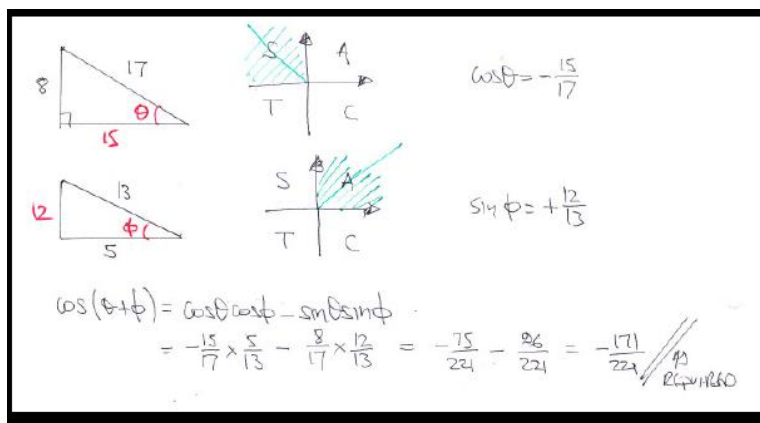 8
17
θ
15
S A
T C
cosθ = -15/17
12
13
ϕ
5
S A
T C
sinϕ = +12/13
cos(θ+ϕ) = cosθcosϕ - sinθsinϕ
= -15/17 × 5/13 - 8/17 × 12/13 = -75/221 - 96/221 = -171/221 // AS
REQUIRED